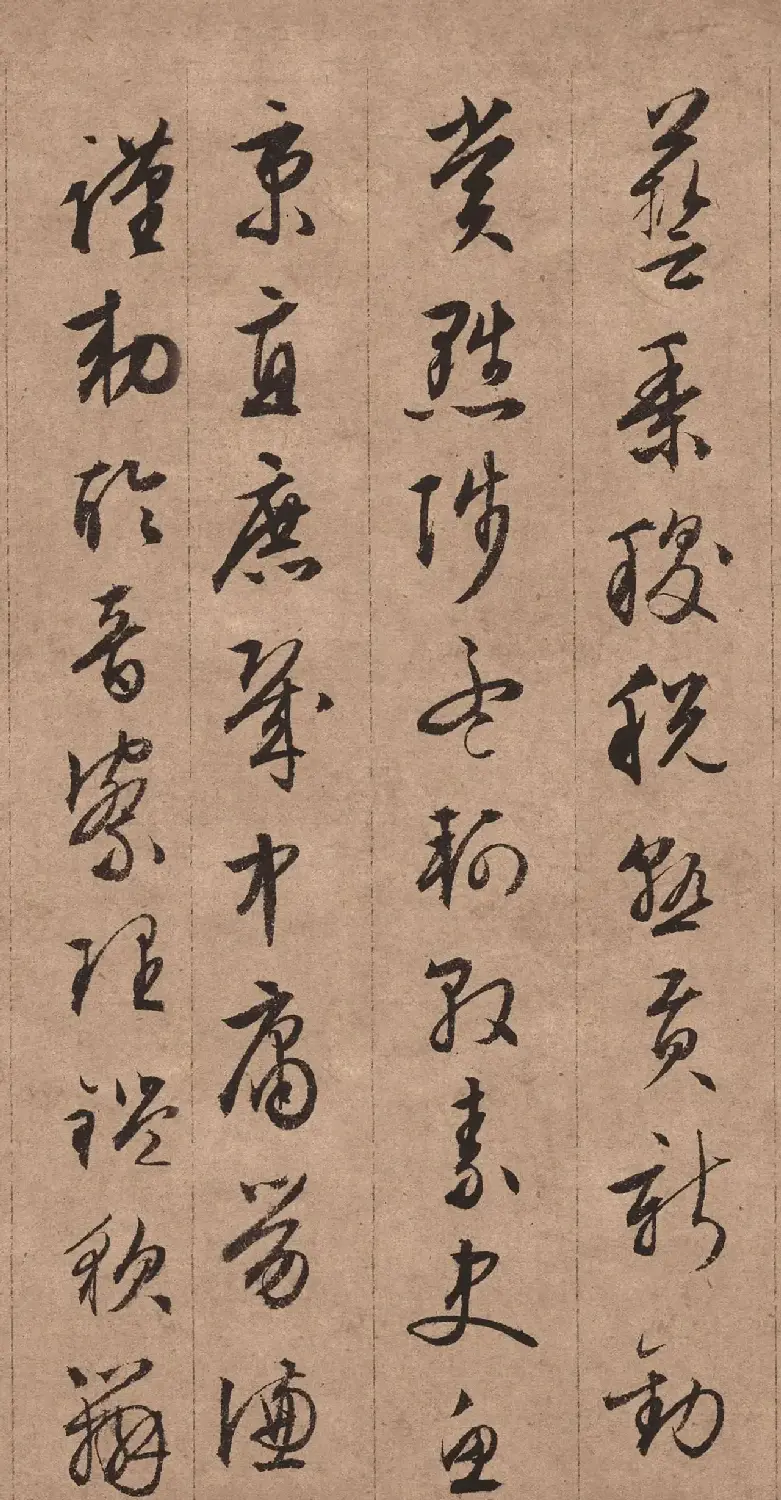 藝黍稷稅熟貢新勸
賞黜陟孟軻敦素史魚
秉直庶幾中庸勞謙
謹勑聆音察理鑑貌辨